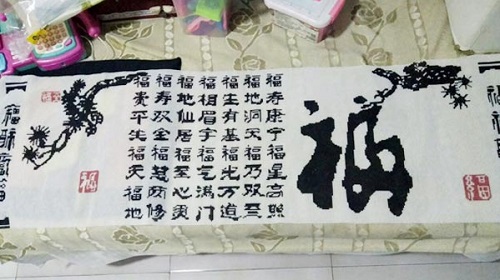 福
福寿康宁福星高照
福地洞天福乃双至
福生有基福光万道
福相眉宇福气满门
福地仙居福至心灵
福寿双全福慧双修
福贵平生福天福地
福